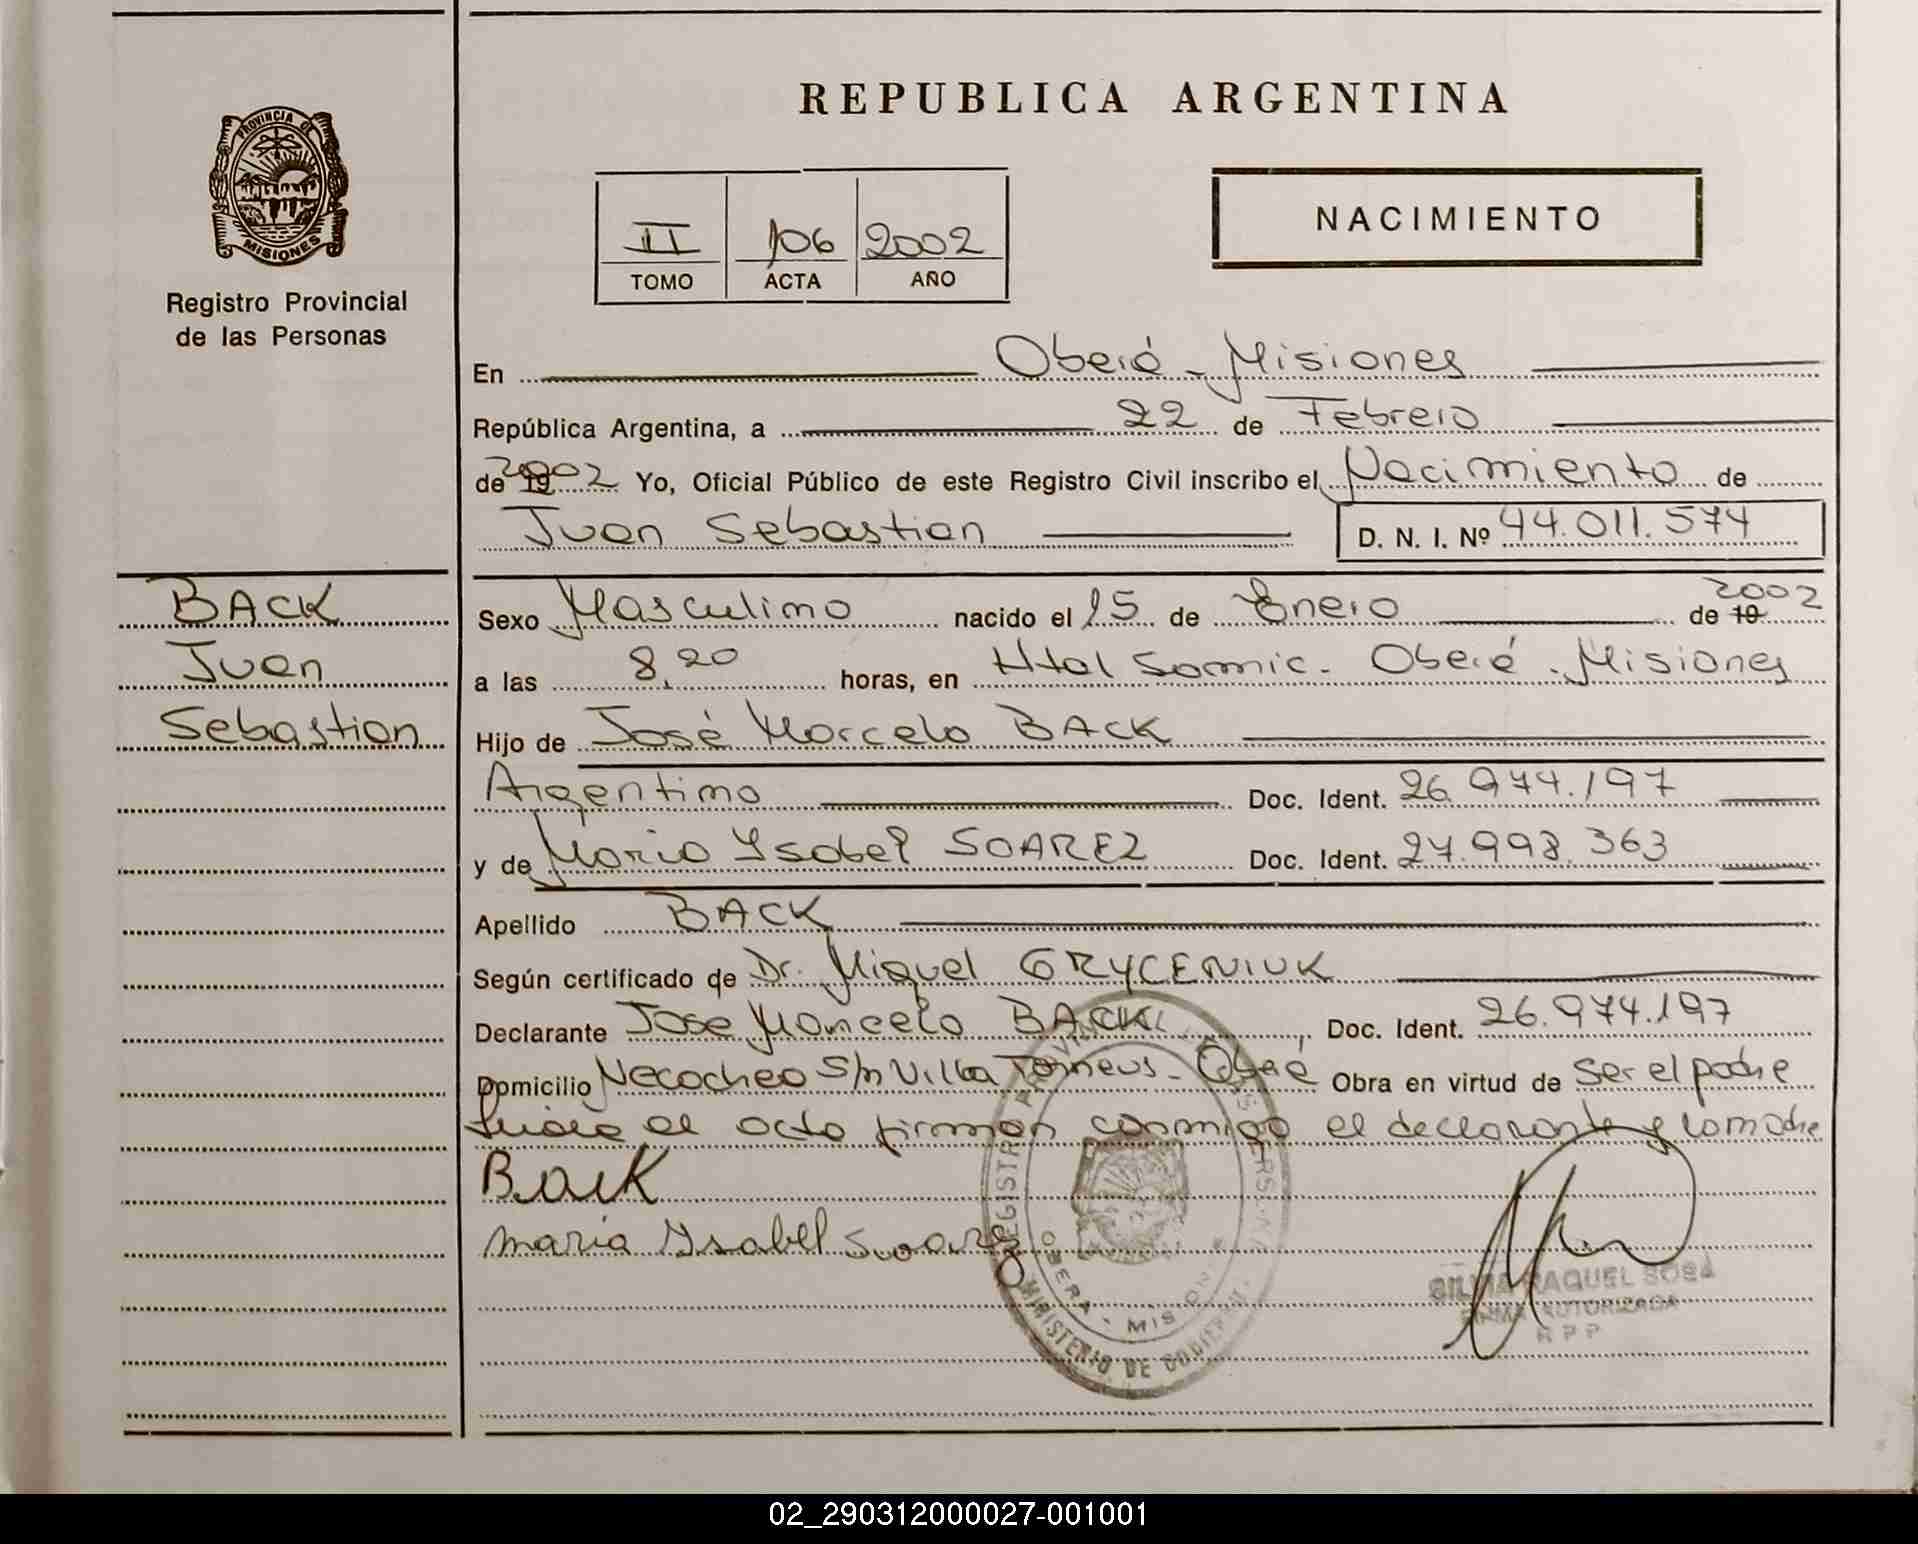 REPUBLICA ARGENTINA
PROVINCIA DE
MISIONES
Registro Provincial
de las Personas
II 106 2002
TOMO ACTA AÑO
NACIMIENTO
En Oberá - Misiones
República Argentina, a 22 de Febrero
de 19 2002 Yo, Oficial Público de este Registro Civil inscribo el Nacimiento de
Juan Sebastian D. N. I. Nº 44.011.574
BACK
Juan
Sebastian
Sexo Masculino nacido el 15 de Enero de 19 2002
a las 8,20 horas, en Htal Samic - Oberá - Misiones
Hijo de José Marcelo BACK
Argentino Doc. Ident. 26.974.197
y de Maria Ysabel SOAREZ Doc. Ident. 27.998.363
Apellido BACK
Según certificado de Dr. Miguel GRYCENIUK
Declarante Jose Marcelo BACK, Doc. Ident. 26.974.197
Domicilio Necochea S/n Villa Torneus - Oberá Obra en virtud de ser el padre
el acta firman conmigo el declarante y la madre
Back
Maria Ysabel Soarez
REGISTRO
OBERA - MISIONES
MINISTERIO DE GOBIERNO
SILVIA RAQUEL SOSA
FIRMA AUTORIZADA
R P P
02_290312000027-001001